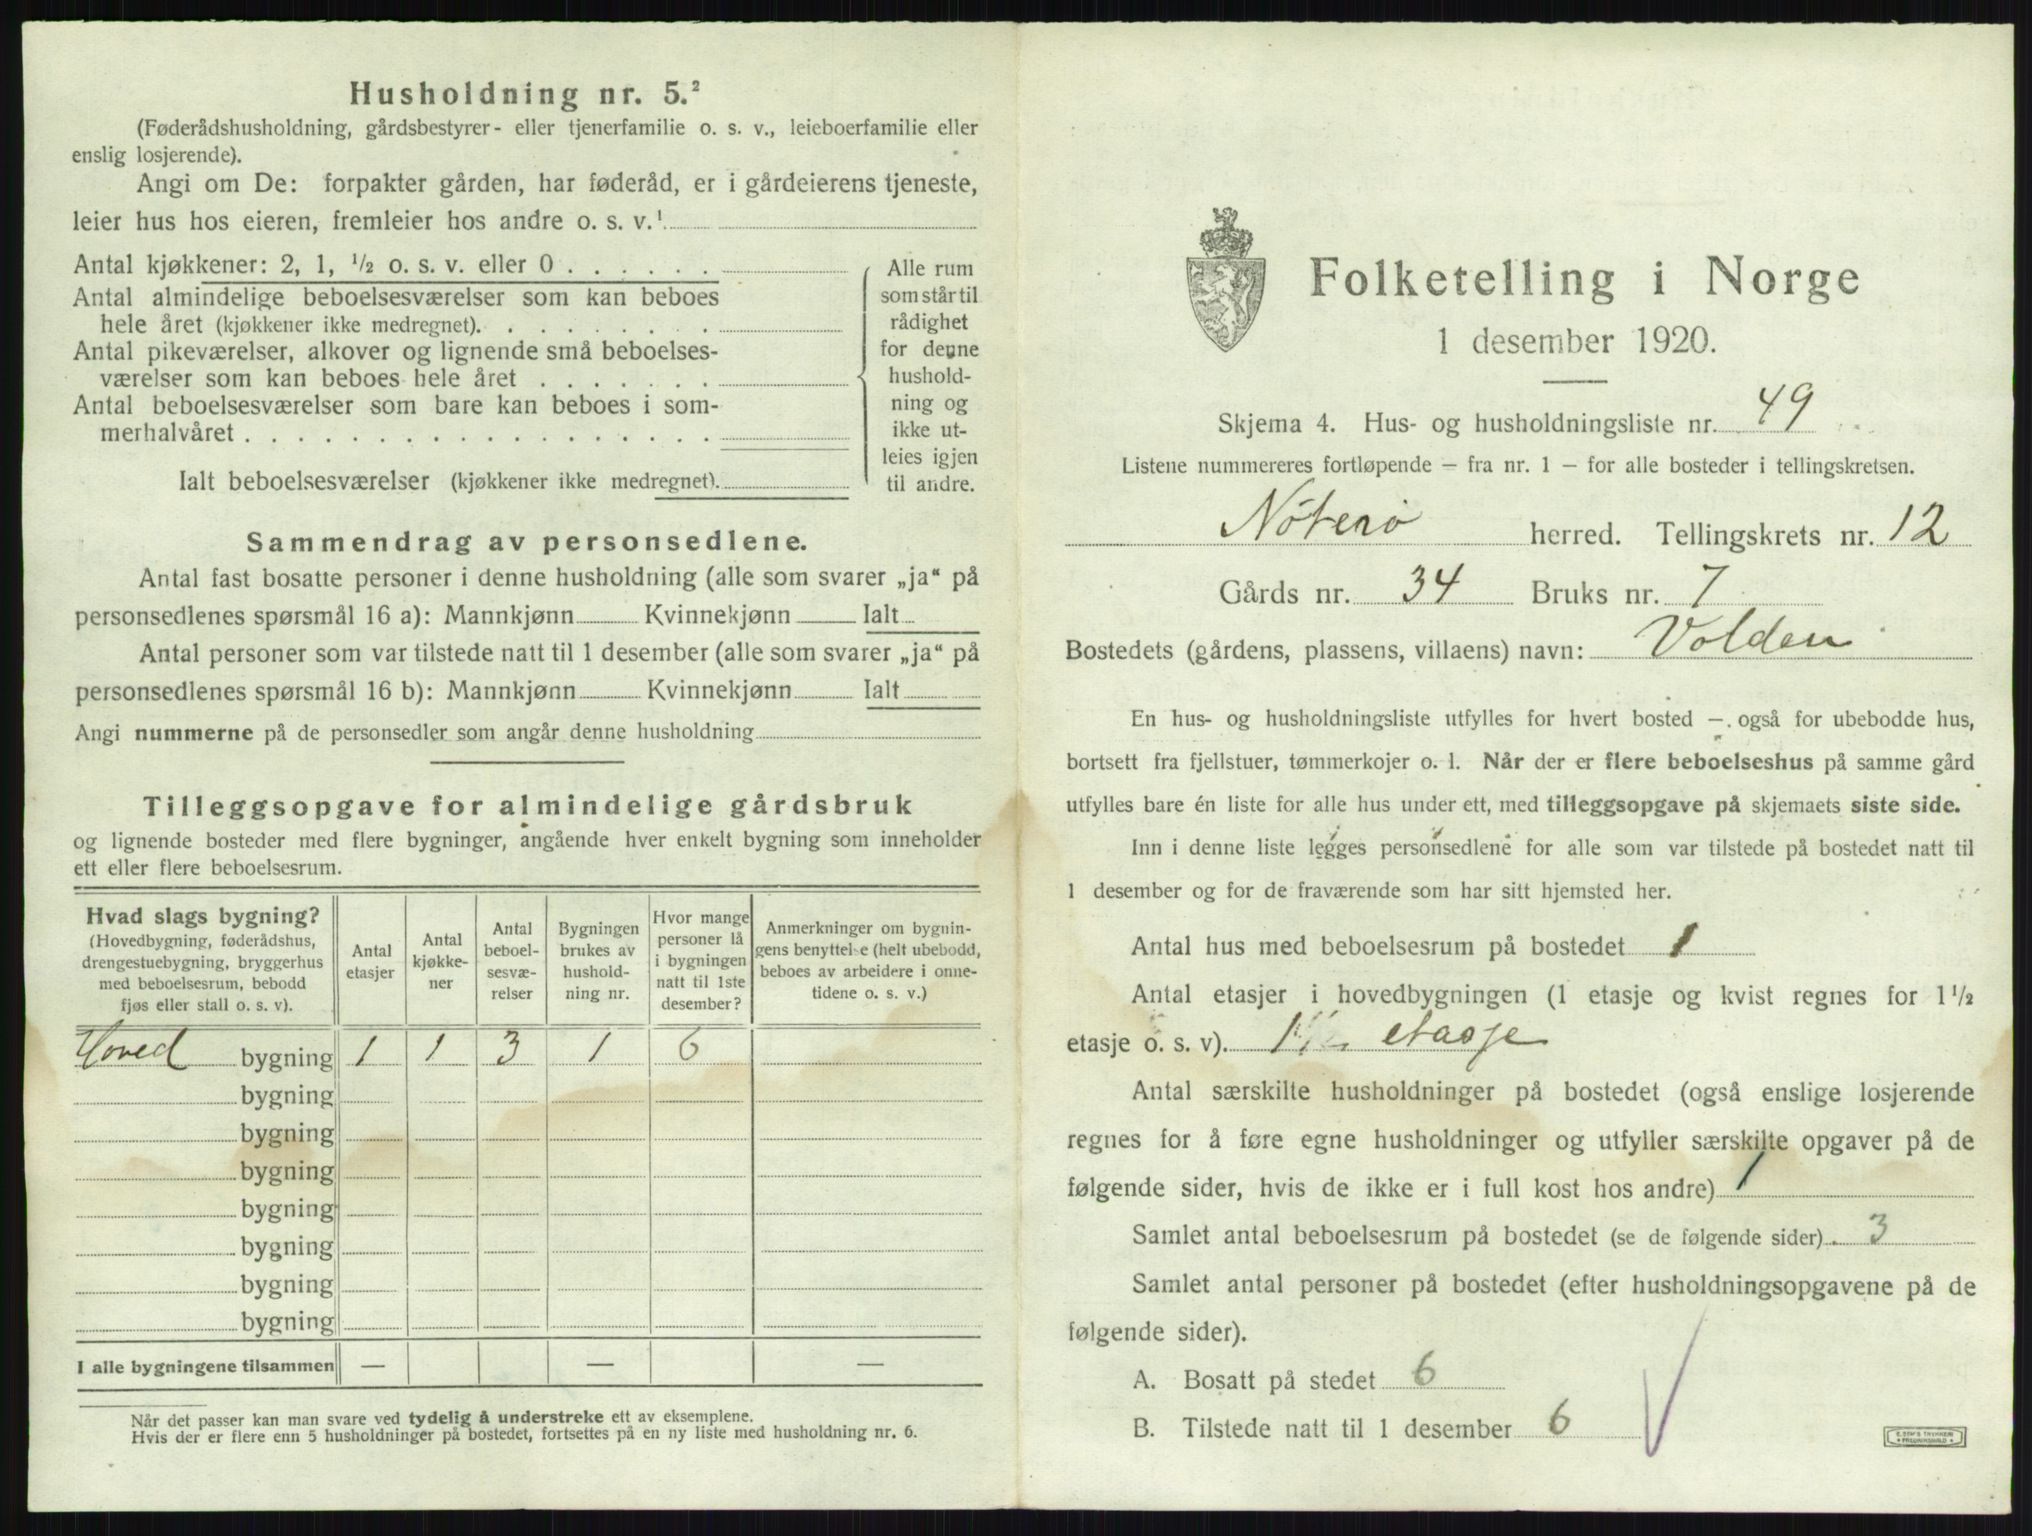 Husholdning nr. 5.²
(Føderådshusholdning, gårdsbestyrer- eller tjenerfamilie o. s. v., leieboerfamilie eller
enslig losjerende).
Angi om De: forpakter gården, har føderåd, er i gårdeierens tjeneste,
leier hus hos eieren, fremleier hos andre o. s. v.¹
Antal kjøkkener: 2, 1, ½ o. s. v. eller 0 . . . . . .
Antal almindelige beboelsesværelser som kan beboes
hele året (kjøkkener ikke medregnet). . . . . . . . .
Antal pikeværelser, alkover og lignende små beboelses-
værelser som kan beboes hele året . . . . . . .
Antal beboelsesværelser som bare kan beboes i som-
merhalvåret . . . . . . . . . . . . . . . . . .
Ialt beboelsesværelser (kjøkkener ikke medregnet).
Alle rum
som står til
rådighet
for denne
hushold-
ning og
ikke ut-
leies igjen
til andre.
Sammendrag av personsedlene.
Antal fast bosatte personer i denne husholdning (alle som svarer „ja“ på
personsedlenes spørsmål 16 a): Mannkjønn Kvinnekjønn Ialt
Antal personer som var tilstede natt til 1 desember (alle som svarer „ja“ på
personsedlenes spørsmål 16 b): Mannkjønn Kvinnekjønn Ialt
Angi nummerne på de personsedler som angår denne husholdning
Tilleggsopgave for almindelige gårdsbruk
og lignende bosteder med flere bygninger, angående hver enkelt bygning som inneholder
ett eller flere beboelsesrum.
Hvad slags bygning?
(Hovedbygning, føderådshus,
drengestuebygning, bryggerhus
med beboelsesrum, bebodd
fjøs eller stall o. s. v).
Antal
etasjer
Antal
kjøkke-
ner
Antal
beboel-
sesvæ-
relser
Bygningen
brukes av
hushold-
ning nr.
Hvor mange
personer lå
i bygningen
natt til 1ste
desember?
Anmerkninger om bygnin-
gens benyttelse (helt ubebodd,
beboes av arbeidere i onne-
tidene o. s. v.)
Hoved bygning 1 1 3 1 6
bygning
bygning
bygning
bygning
bygning
bygning
bygning
I alle bygningene tilsammen — — —
Når det passer kan man svare ved tydelig å understreke ett av eksemplene.
Hvis der er flere enn 5 husholdninger på bostedet, fortsettes på en ny liste med husholdning nr. 6.
Folketelling i Norge
1 desember 1920.
Skjema 4. Hus- og husholdningsliste nr. 49
Listene nummereres fortløpende — fra nr. 1 — for alle bosteder i tellingskretsen.
Nöterö herred. Tellingskrets nr. 12
Gårds nr. 34 Bruks nr. 7
Bostedets (gårdens, plassens, villaens) navn: Volden
En hus- og husholdningsliste utfylles for hvert bosted — også for ubebodde hus,
bortsett fra fjellstuer, tømmerkojer o. l. Når der er flere beboelseshus på samme gård
utfylles bare én liste for alle hus under ett, med tilleggsopgave på skjemaets siste side.
Inn i denne liste legges personsedlene for alle som var tilstede på bostedet natt til
1 desember og for de fraværende som har sitt hjemsted her.
Antal hus med beboelsesrum på bostedet 1
Antal etasjer i hovedbygningen (1 etasje og kvist regnes for 1½
etasje o. s. v). 1½ etasje
Antal særskilte husholdninger på bostedet (også enslige losjerende
regnes for å føre egne husholdninger og utfyller særskilte opgaver på de
følgende sider, hvis de ikke er i full kost hos andre) 1
Samlet antal beboelsesrum på bostedet (se de følgende sider) 3
Samlet antal personer på bostedet (efter husholdningsopgavene på de
følgende sider).
A. Bosatt på stedet 6
B. Tilstede natt til 1 desember 6